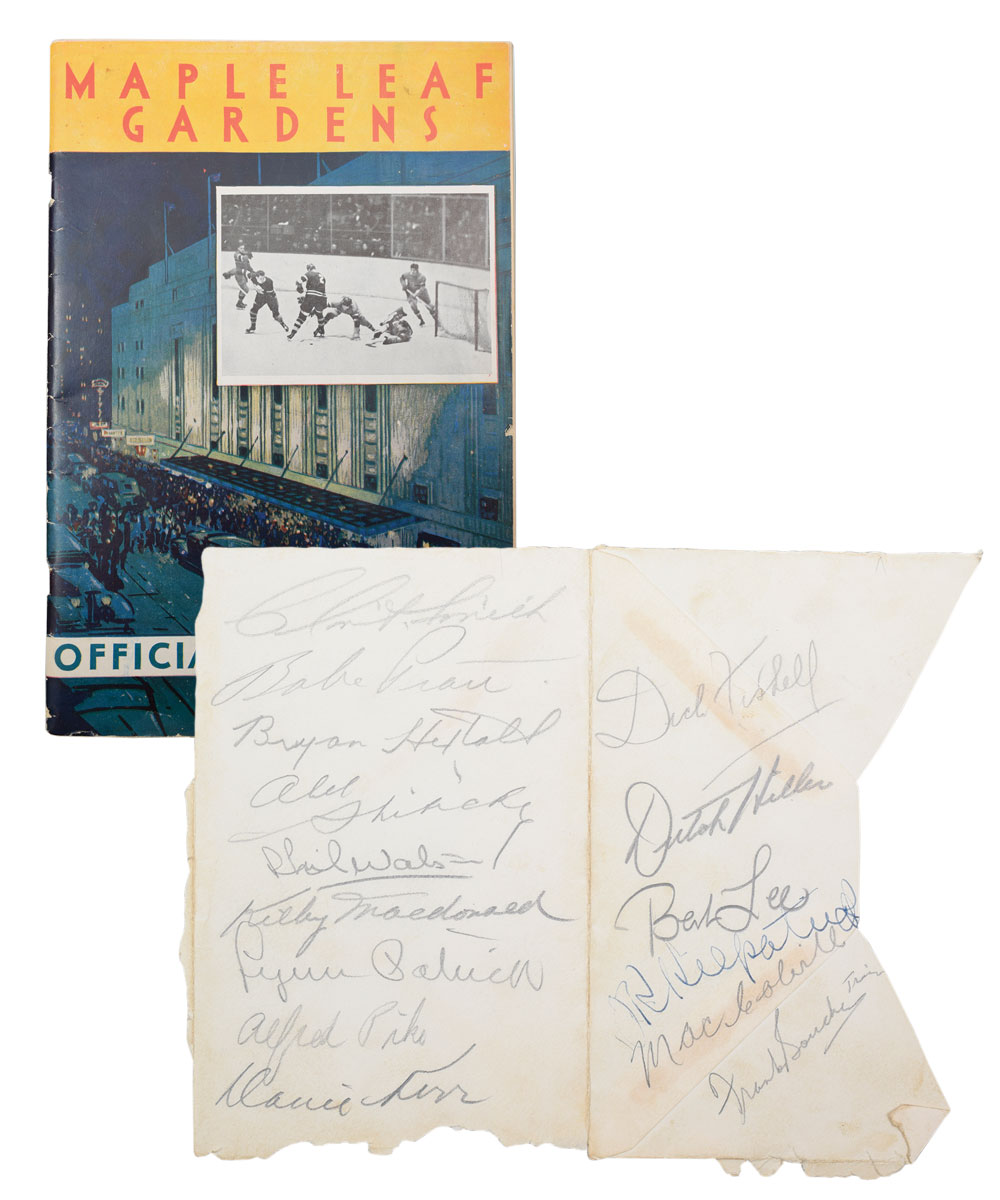 MAPLE LEAF
GARDENS
OFFICIA
Clint Smith
Babe Pratt
Bryan Hextall
Alex Shibicky
Phil Watson
Kilby Macdonald
Lynn Patrick
Alfred Pike
Davie Kerr
Dick
Dutch Hiller
Bert Lee
Kilpatrick
Mac Colville
Frank Boucher